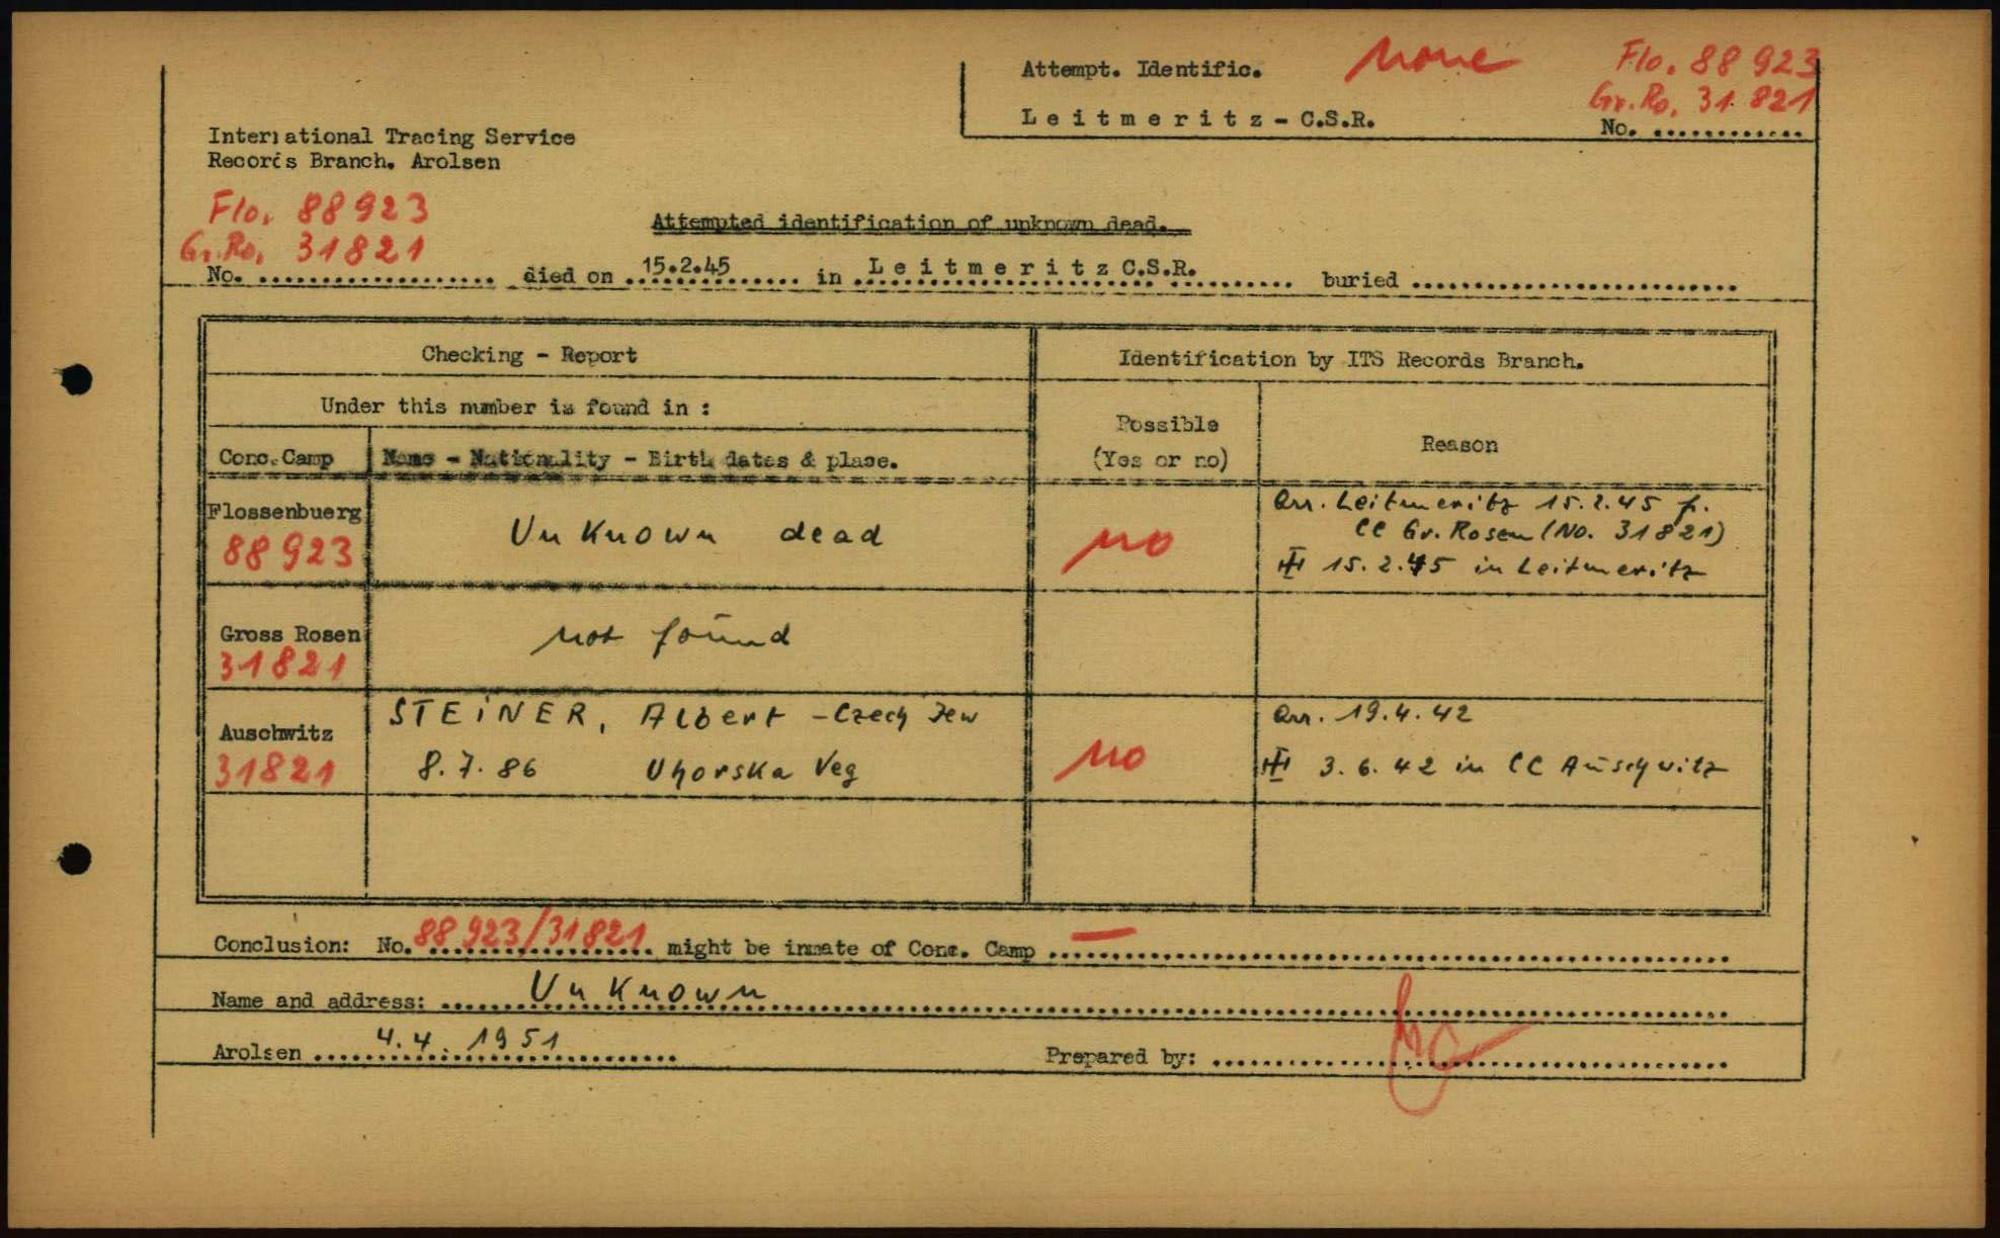 Attempt. Identific. none Flo. 88 923
Gr.Ro. 31 821
Leitmeritz - C.S.R. No. ............
International Tracing Service
Records Branch. Arolsen
Flo. 88923
Gr.Ro. 31821
Attempted identification of unknown dead.
No. .................. died on 15.2.45 in Leitmeritz C.S.R. buried .........................
Checking - Report
Identification by ITS Records Branch.
Under this number is found in :
Possible
(Yes or no)
Reason
Conc.Camp
Name - Nationality - Birth dates & place.
Flossenbuerg
88 923
Unknown dead
no
Arr. Leitmeritz 15.2.45 f.
CC Gr. Rosen (No. 31821)
15.2.45 in Leitmeritz
Gross Rosen
31821
not found
Auschwitz
31821
STEINER, Albert - Czech Jew
8.7.86 Uhorska Veg
no
Arr. 19.4.42
3.6.42 in CC Auschwitz
Conclusion: No. 88 923/31821 might be inmate of Conc. Camp —
Name and address: Unknown
Arolsen 4.4.1951 Prepared by: